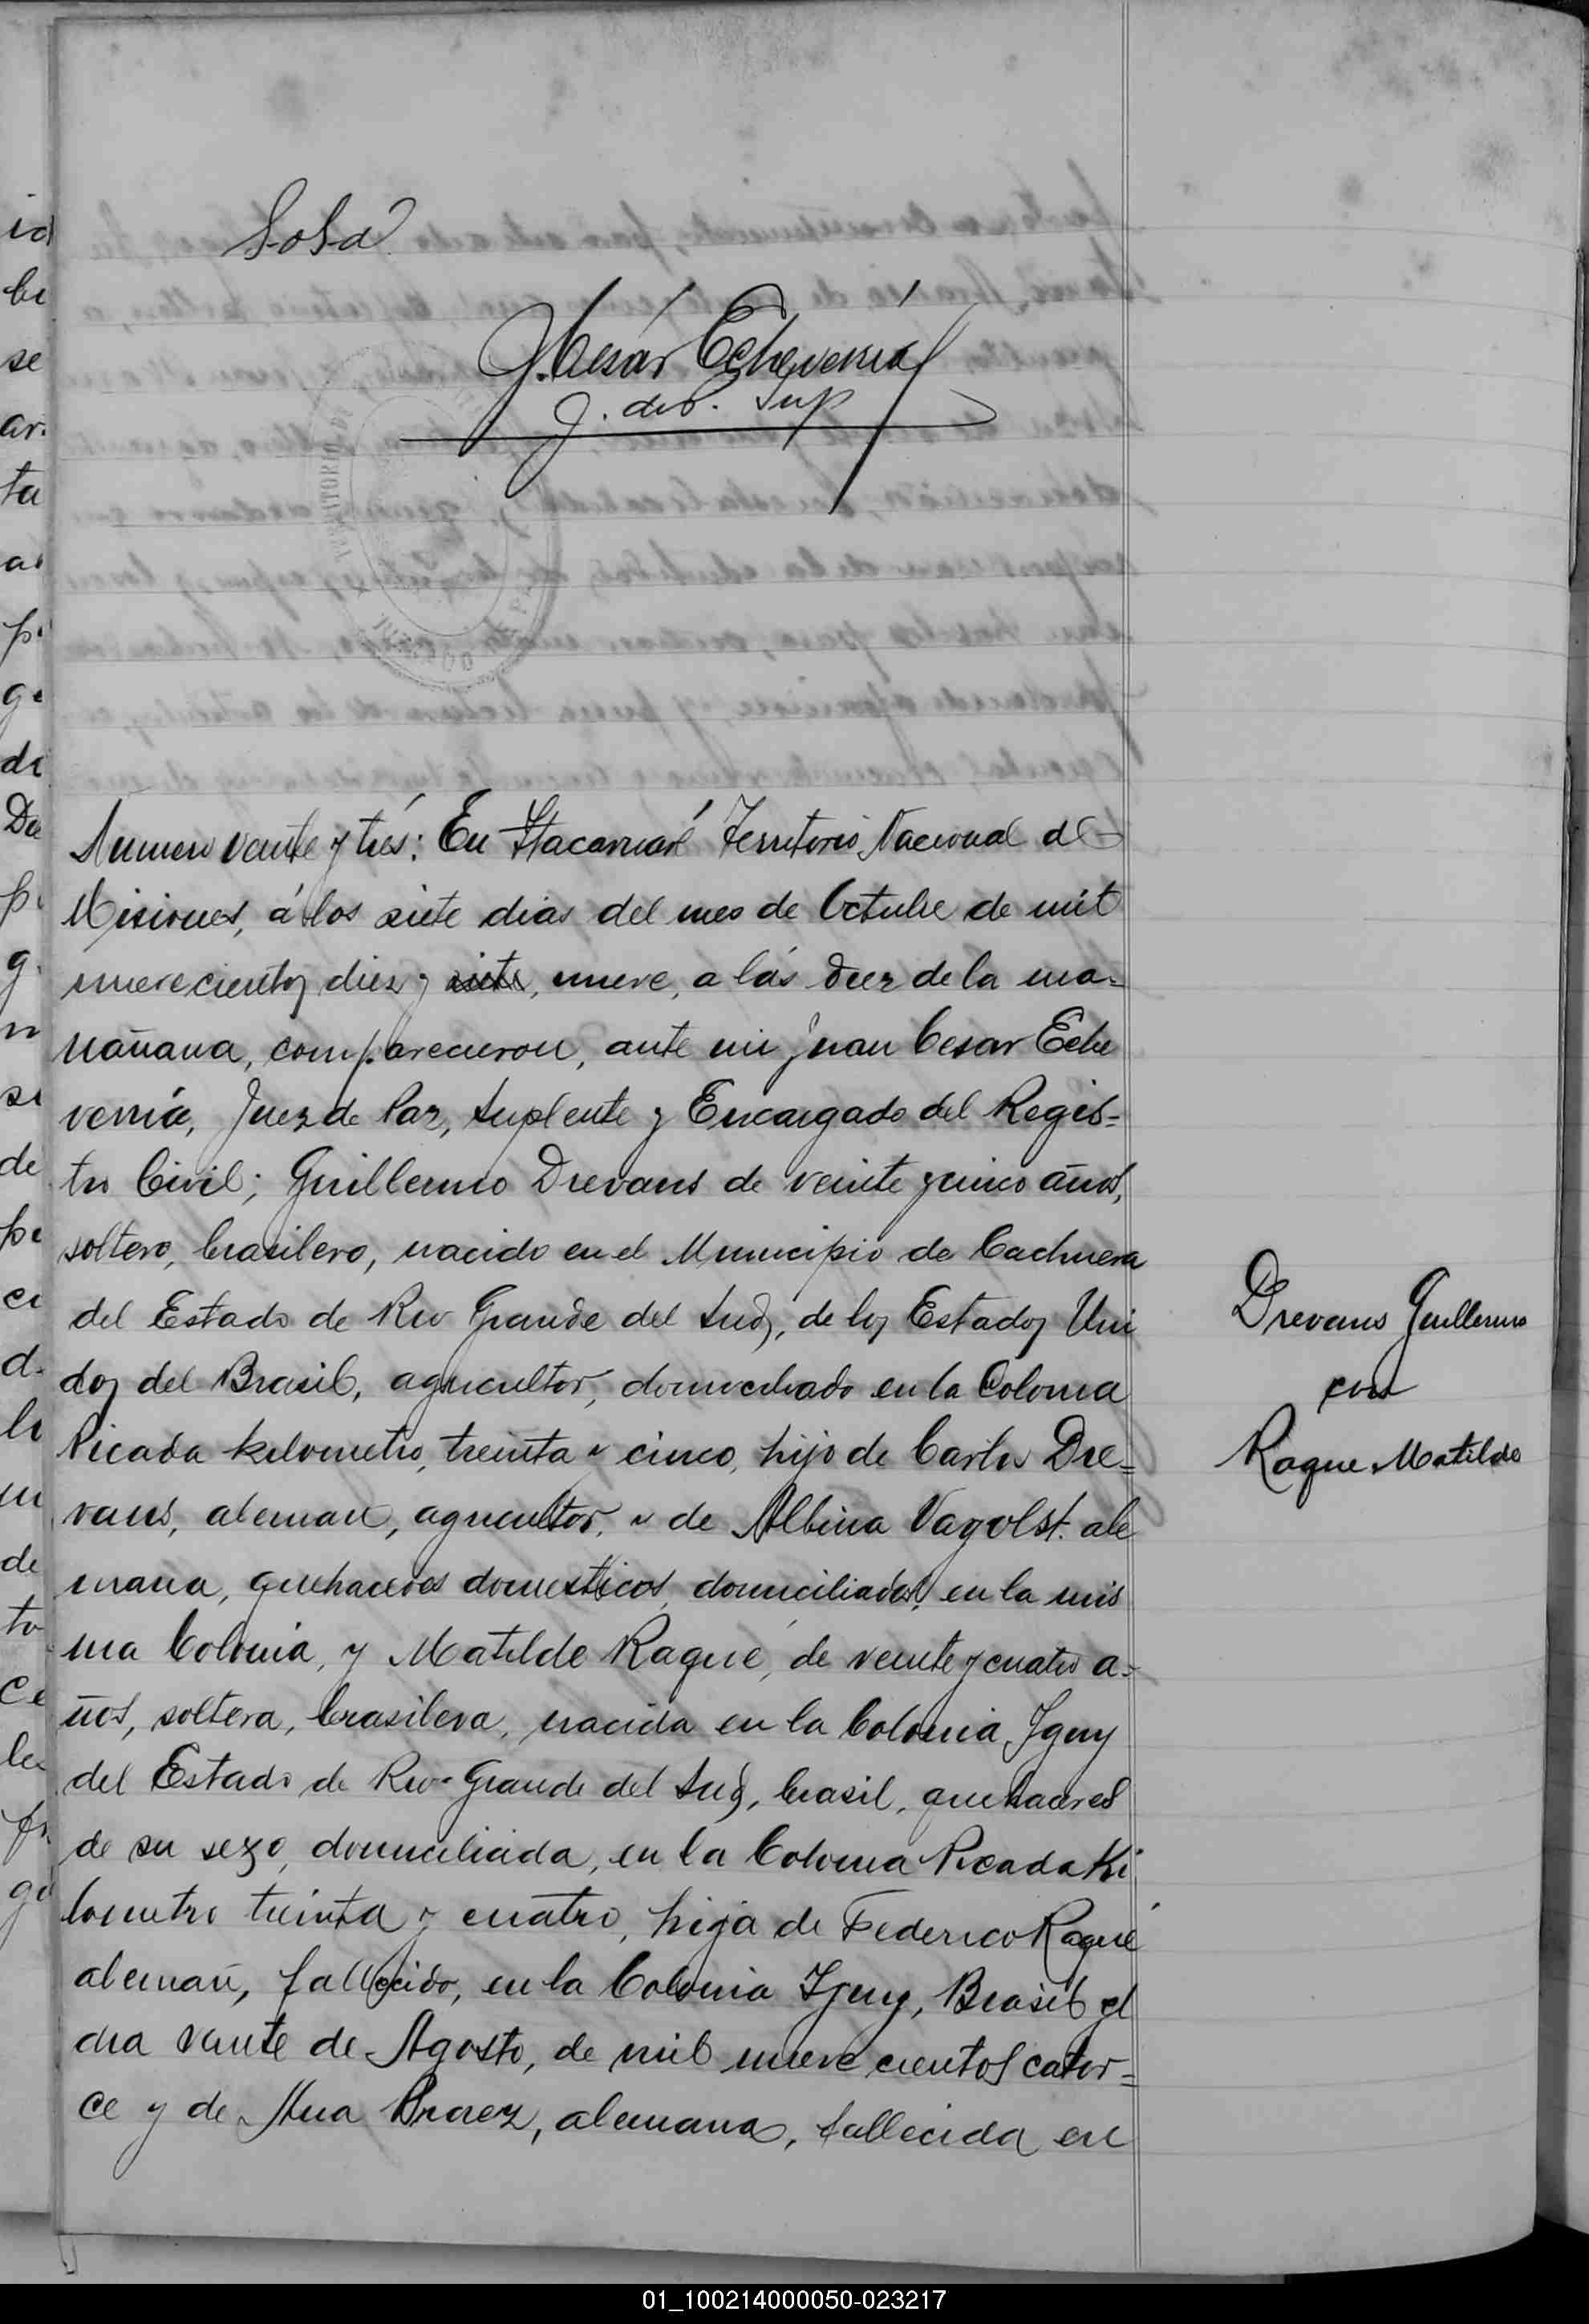 Sosa
J. César Echeverría
J. de P. Sup
Numero veinte y trés: En Itacaruaré Territorio Nacional de
Misiones, á los siete dias del mes de Octubre de mil
nuevecientos diez y siete, nueve, a lás diez de la ma-
ñañana, comparecieron, ante mi Juan Cesar Eche
verria, Juez de Paz, Suplente y Encargado del Regis-
tro Civil; Guillermo Drevans de veinte y cinco años,
soltero, brasilero, nacido en el Municipio de Cachuera
del Estado de Rio Grande del Sud, de los Estados Uni
dos del Brasil, agricultor, domiciliado en la Colonia
Picada kilometro, treinta y cinco, hijo de Carlos Dre=
vans, aleman, agricultor, y de Albina Vagolst. ale
mana, quehaceres domesticos, domiciliados, en la mis
ma Colonia, y Matilde Raque, de veinte y cuatro a=
ños, soltera, brasilera, nacida en la Colonia Iguy
del Estado de Rio-Grande del Sud, brasil, quehaceres
de su sexo, domiciliada, en la Colonia Picada Ki
lometro treinta y cuatro, hija de Federico Raqué
aleman, fallecido, en la Colonia Ijuy, Brasil el
dia veinte de Agosto, de mil nueve cientos cator=
ce y de Ana Braez, alemana, fallecida en
Drevans Guillermo
con
Raque Matilde
01_100214000050-023217